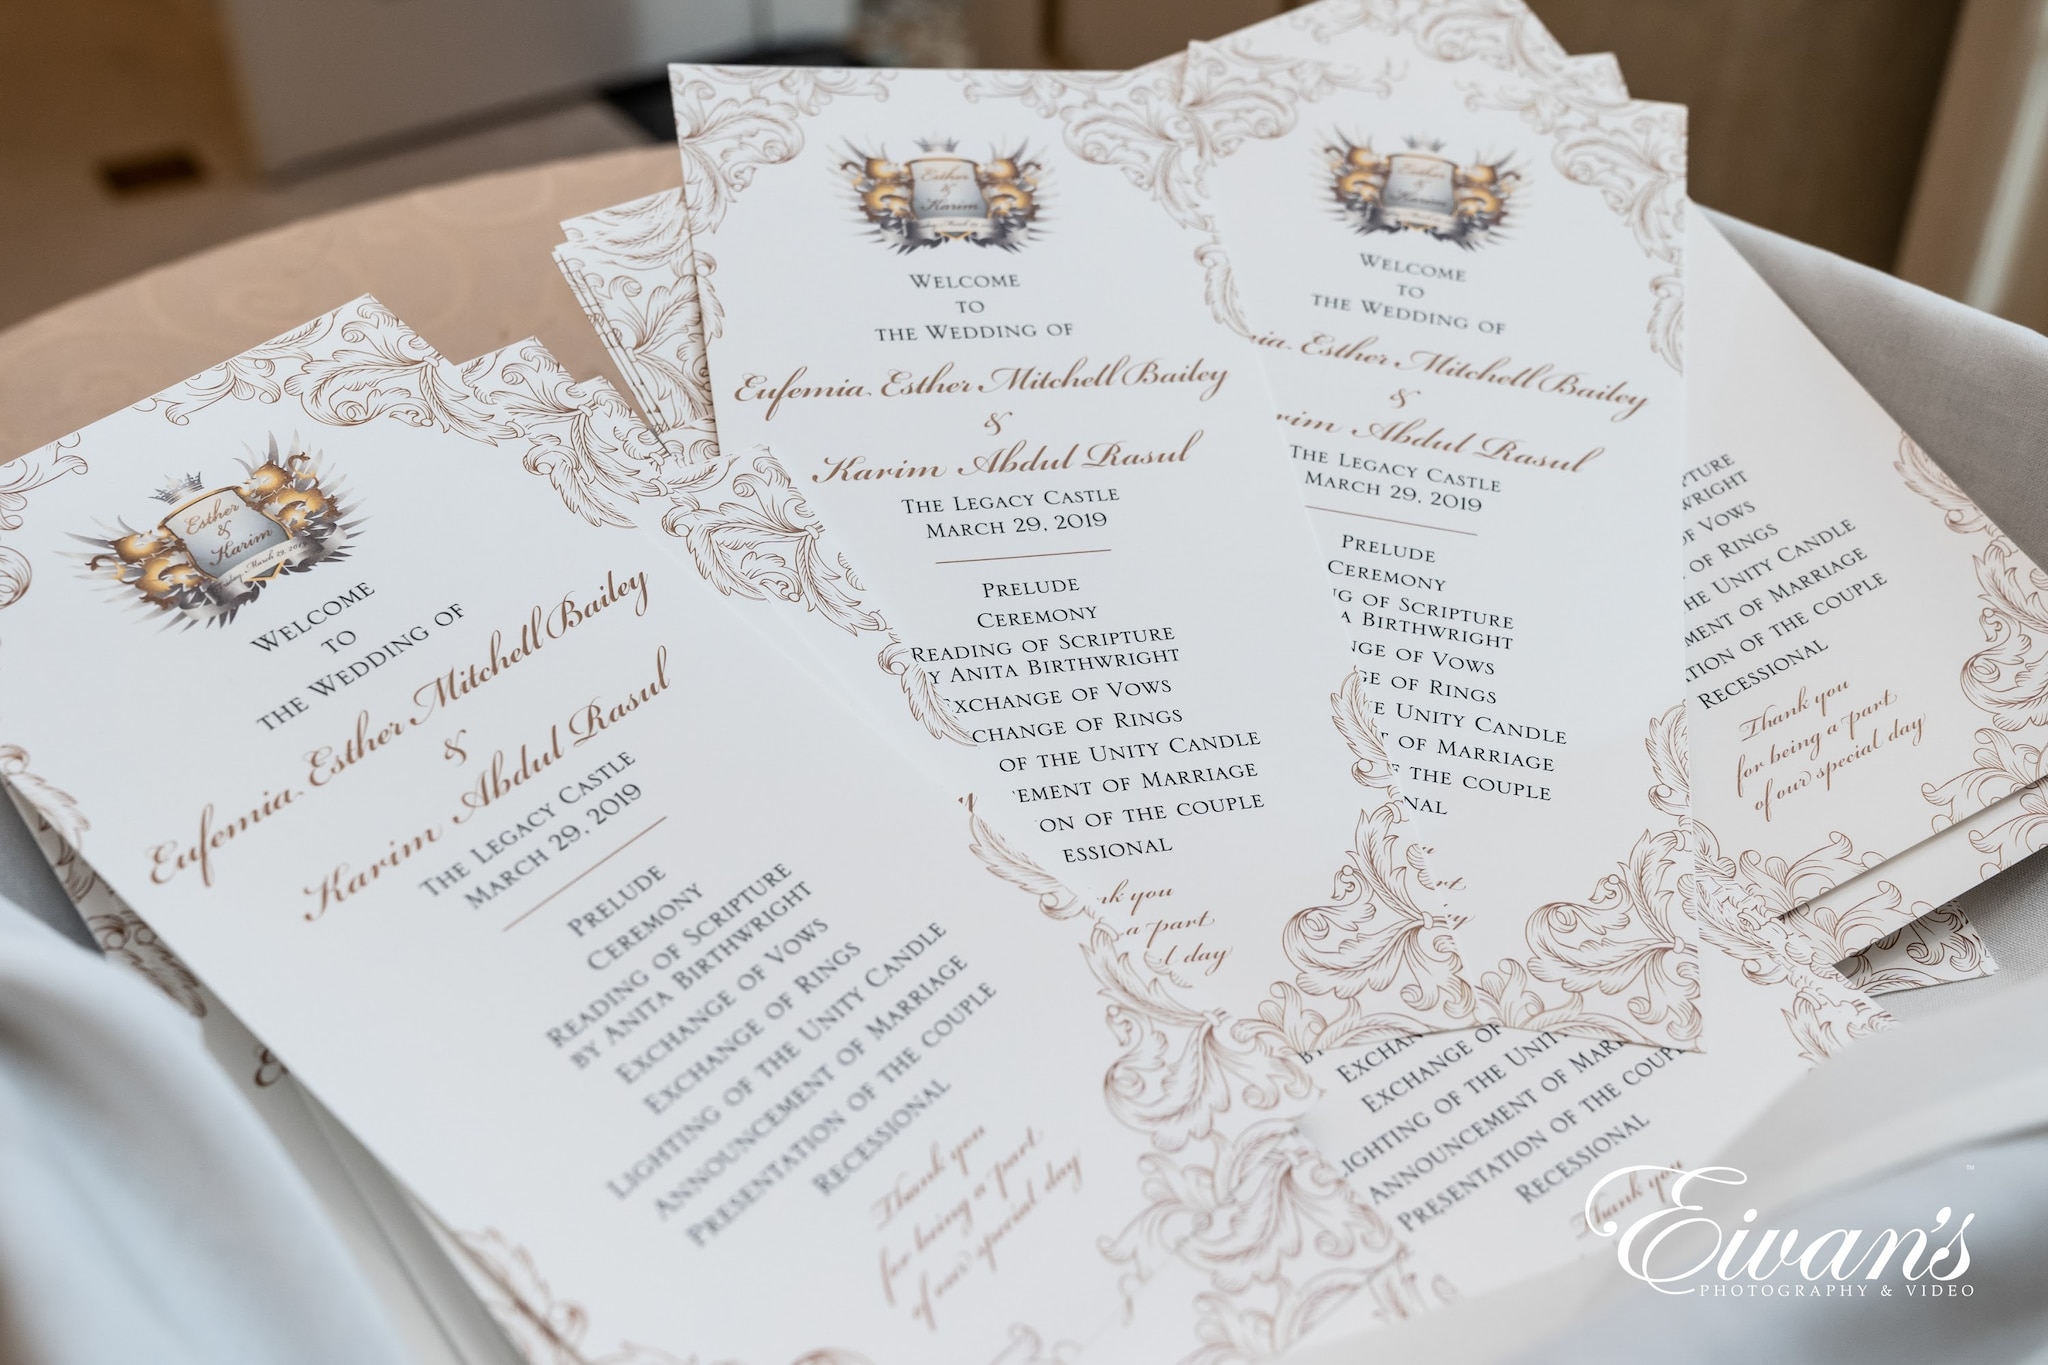 Esther
&
Karim
Friday, March 29, 2019
Welcome
to
the Wedding of
Eufemia Esther Mitchell Bailey
&
Karim Abdul Rasul
The Legacy Castle
March 29, 2019
Prelude
Ceremony
Reading of Scripture
by Anita Birthwright
Exchange of Vows
Exchange of Rings
Lighting of the Unity Candle
Announcement of Marriage
Presentation of the couple
Recessional
Thank you
for being a part
of our special day
Esther
&
Karim
Welcome
to
the Wedding of
Eufemia Esther Mitchell Bailey
&
Karim Abdul Rasul
The Legacy Castle
March 29, 2019
Prelude
Ceremony
Reading of Scripture
y Anita Birthwright
xchange of Vows
change of Rings
of the Unity Candle
ement of Marriage
on of the couple
essional
nk you
a part
l day
Esther
&
Karim
Welcome
to
the Wedding of
ia Esther Mitchell Bailey
&
rim Abdul Rasul
The Legacy Castle
March 29, 2019
Prelude
Ceremony
ng of Scripture
a Birthwright
nge of Vows
ge of Rings
e Unity Candle
t of Marriage
f the couple
nal
pture
wright
of Vows
of Rings
he Unity Candle
ment of Marriage
tion of the couple
Recessional
Thank you
for being a part
of our special day
Exchan
Exchange of
Lighting of the Unit
Announcement of Mar
Presentation of the coup
Recessional
Thank you
Eivan's
PHOTOGRAPHY & VIDEO